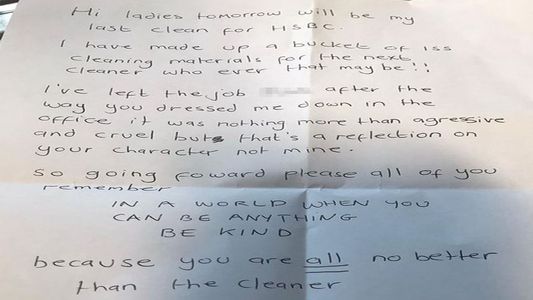 Hi ladies tomorrow will be my
last clean for HSBC.
I have made up a bucket of ISS
cleaning materials for the next
cleaner who ever that may be!!
I've left the job after the
way you dressed me down in the
office it was nothing more than agressive
and cruel but that's a reflection on
your character not mine.
so going foward please all of you
remember
IN A WORLD WHEN YOU
CAN BE ANYTHING
BE KIND
because you are all no better
than the cleaner